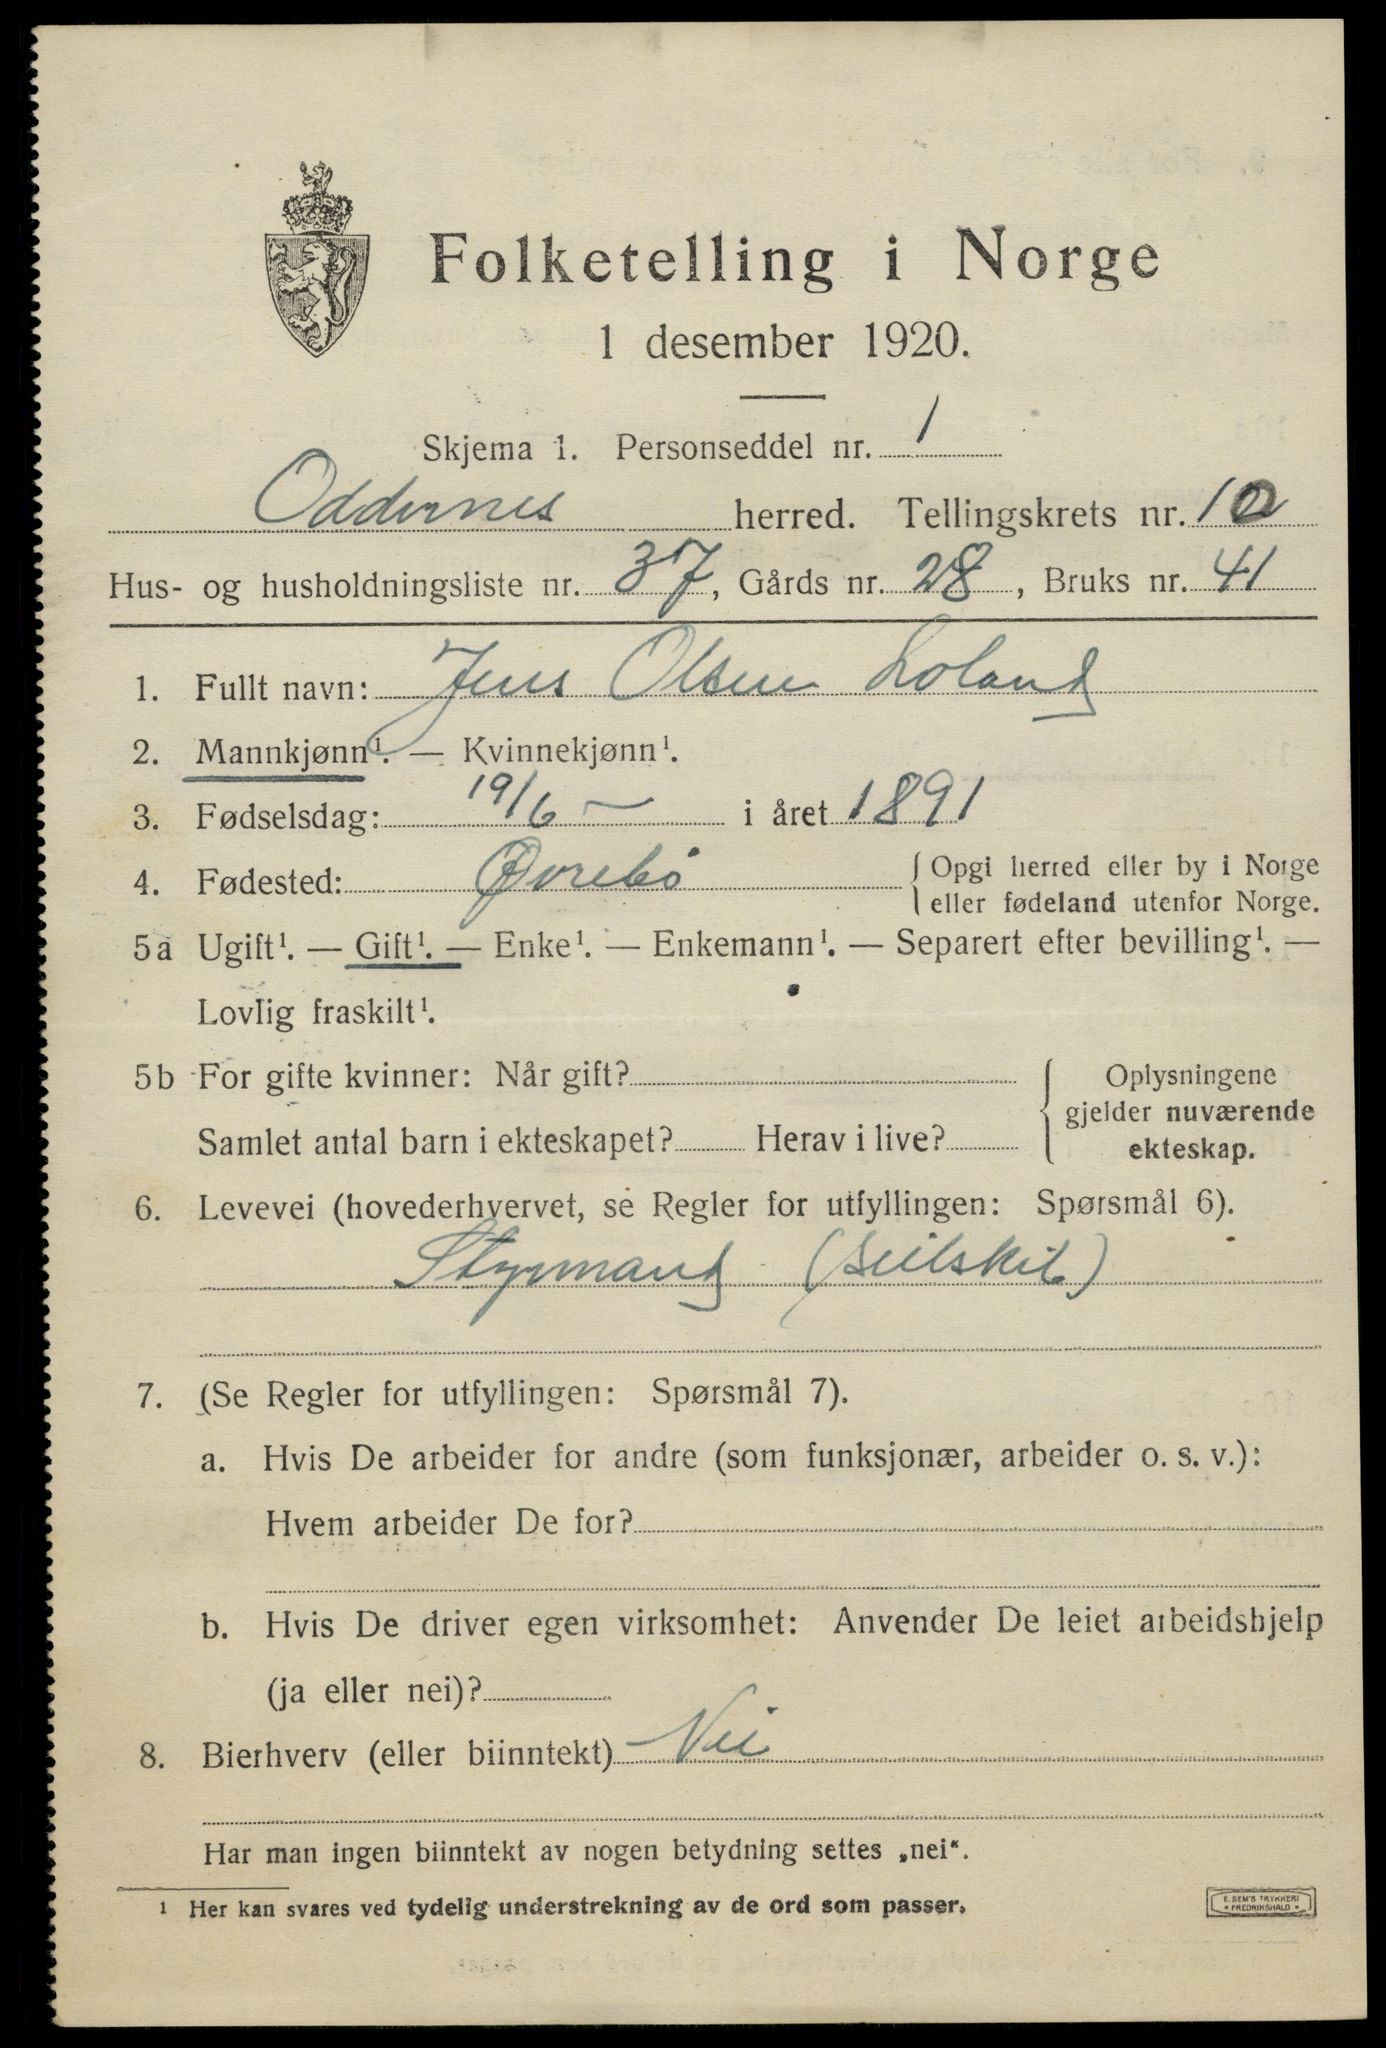 Folketelling i Norge
1 desember 1920.
Skjema 1. Personseddel nr. 1
Oddernes herred. Tellingskrets nr. 10
Hus- og husholdningsliste nr. 37, Gårds nr. 28, Bruks nr. 41
1. Fullt navn: Jens Olsen Loland
2. Mannkjønn¹. — Kvinnekjønn¹.
3. Fødselsdag: 19/6 — i året 1891
4. Fødested: Øvrebø { Opgi herred eller by i Norge
eller fødeland utenfor Norge.
5a Ugift¹. — Gift¹. — Enke¹. — Enkemann¹. — Separert efter bevilling¹. —
Lovlig fraskilt¹.
5b For gifte kvinner: Når gift?
Samlet antal barn i ekteskapet? Herav i live?
{ Oplysningene
gjelder nuværende
ekteskap.
6. Levevei (hovederhvervet, se Regler for utfyllingen: Spørsmål 6).
Styrmand (Seilskib)
7. (Se Regler for utfyllingen: Spørsmål 7).
a. Hvis De arbeider for andre (som funksjonær, arbeider o. s. v.):
Hvem arbeider De for?
b. Hvis De driver egen virksomhet: Anvender De leiet arbeidshjelp
(ja eller nei)?
8. Bierhverv (eller biinntekt) Nei
Har man ingen biinntekt av nogen betydning settes „nei“.
¹ Her kan svares ved tydelig understrekning av de ord som passer.
E. SEM'S TRYKKERI
* FREDRIKSHALD *